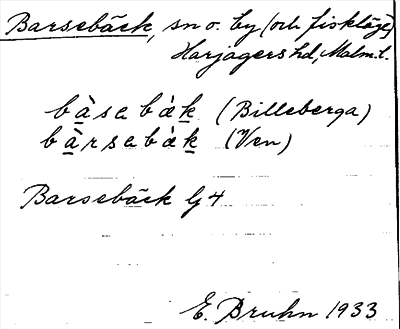 Barsebäck, sn o. by (och fiskläge)
Harjagers hd, Malm.l.
bàsabàk (Billeberga)
bàrsabàk (Ven)
Barsebäck G4
E. Bruhn 1933